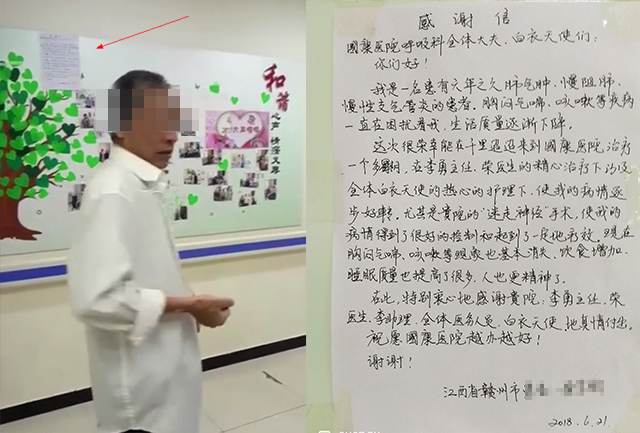 和谐
心声 情深又暖
感谢信
國康医院呼吸科全体大夫、白衣天使们:
你们好!
我是一名患有六年之久肺气肿、慢阻肺、
慢性支气管炎的患者,胸闷气喘、咳嗽等疾病
一直在困扰着我,生活质量逐渐下降。
这次很荣幸能在千里迢迢来到國康医院,治疗
一个多星期,在李勇主任、荣医生的精心治疗下以及
全体白衣天使的热心的护理下,使我的病情逐
步好转,尤其是贵院的“迷走神经”手术,使我的
病情得到了很好的控制和起到了一定地疗效。现在
胸闷气喘、咳嗽等现象也基本消失,饮食增加,
睡眠质量也提高了很多,人也更精神了。
在此,特别衷心地感谢贵院:李勇主任、荣
医生、李助理、全体医务人员、白衣天使地真情付出,
祝愿國康医院越办越好!
谢谢!
江西省赣州市
2018.6.21.